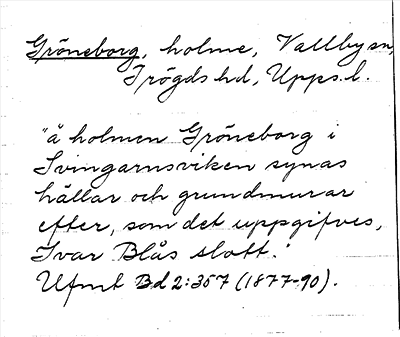 Gröneborg, holme, Vallby sn,
Trögds hd, Upps. l.
"å holmen Gröneborg i
Svingarnsviken synas
hällar och grundmurar
efter, som det uppgifves,
Ivar Blås slott."
Ufmt Bd 2:357 (1877-90).